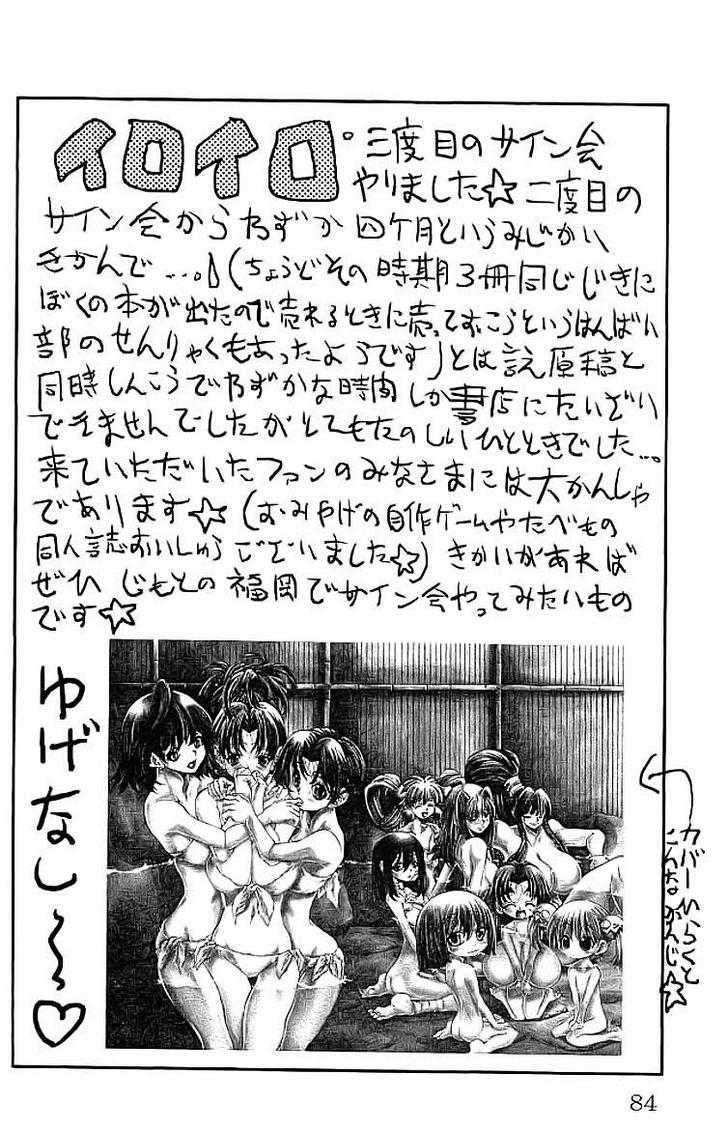 イロイロ。三度目のサイン会
やりました☆二度目の
サイン会からわずか四ケ月というみじかい
きかんで…。(ちょうどその時期3冊同じじきに
ぼくの本が出たので売れるときに売っておこうというはんばい
部のせんりゃくもあったようです)とは言え原稿と
同時しんこうでわずかな時間しか書店にたいざい
できませんでしたがとてもたのしいひとときでした…。
来ていただいたファンのみなさまには大かんしゃ
であります☆(おみやげの自作ゲームやたべもの
同人誌おいしゅうございました☆)きかいがあれば
ぜひじもとの福岡でサイン会やってみたいもの
です☆
ゆげなし〜〜♡
カバーひらくと
こんなかんじ☆
84